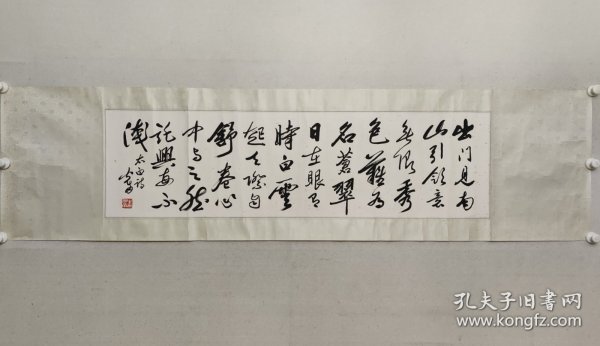 出门见南
山引领意
無限秀
色難为
名蒼翠
日在眼有
時白雲
起天際自
舒卷心
中与之然
託興每不
淺
太白诗
孔夫子旧书网
www.kongfz.com